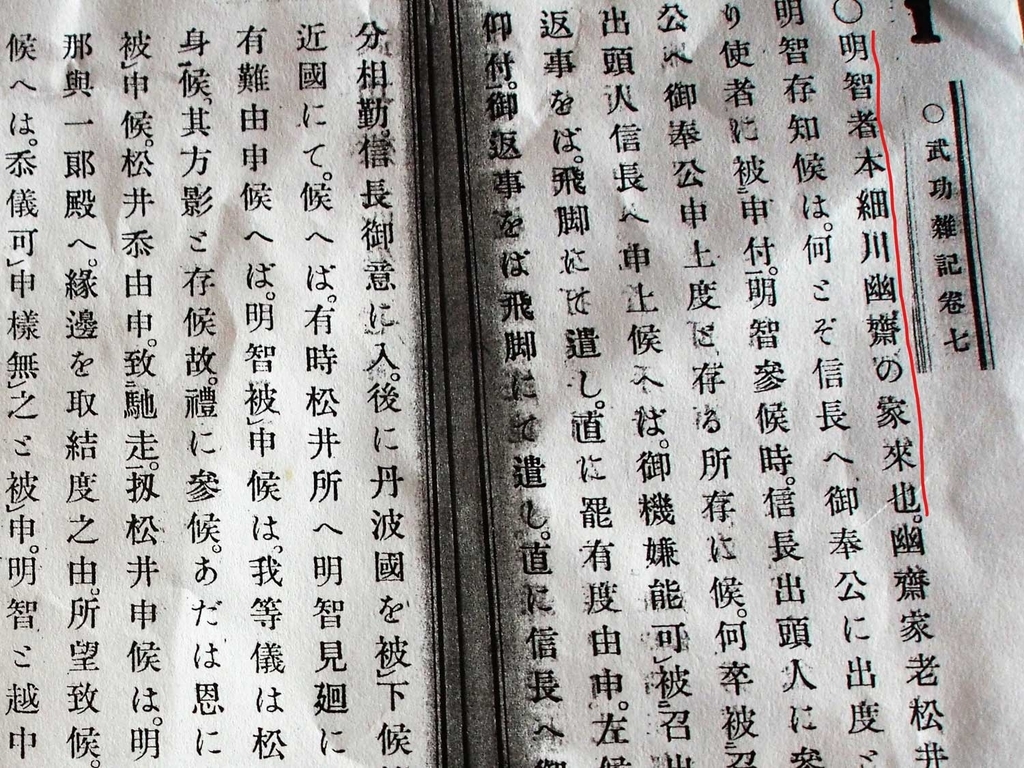 ○武功雜記卷七
○明智者本細川幽齋の家來也。幽齋家老松井
明智存知候は。何とぞ信長へ御奉公に出度と
り使者に被申付。明智參候時。信長出頭人に參
公へ御奉公申上度と存る所存に候。何卒被召
出頭人信長へ申上候へは。御機嫌能可被召出
返事をば。飛脚にて遣し。直に罷有度由申。左候
仰付。御返事をば飛脚にて遣し。直に信長へ御
分相勤。信長御意に入。後に丹波國を被下候
近國にて。候へば。有時松井所へ明智見廻に
有難由申候へば。明智被申候は。我等儀は松
身候。其方影と存候故。禮に參候。あだは恩に
被申候。松井忝由申。致馳走。扨松井申候は。明
那與一郞殿へ。緣邊を取結度之由。所望致候。
候へは。忝儀可申樣無之と被申。明智と越中